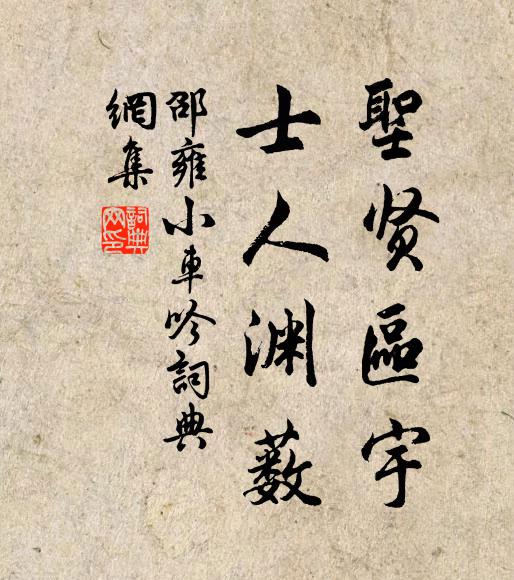 聖贤區宇
士人渊薮
邵雍小車吟詞典
網集
詞典
网印